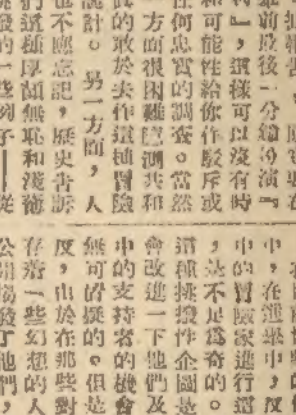 後一分鐘扮演『
』，這樣可以沒有時
和可能性給你作駁斥或
任何忠實的調查。當然
方面很困難臆測共和
的敢於去作這種冒險
詭計。另一方面，人
也不應忘記，歷史告訴
們這種厚顏無恥和淺薄
挑撥的一些例子——從
中，在選舉中，
中的冒險家進行這
，是不足爲奇的。
這種挑撥性企圖是
會改進一下他們及
中的支持者的機會
無可置疑的。但是
度，由於在那些對
存着一些幻想的人
公開揭發了他們，